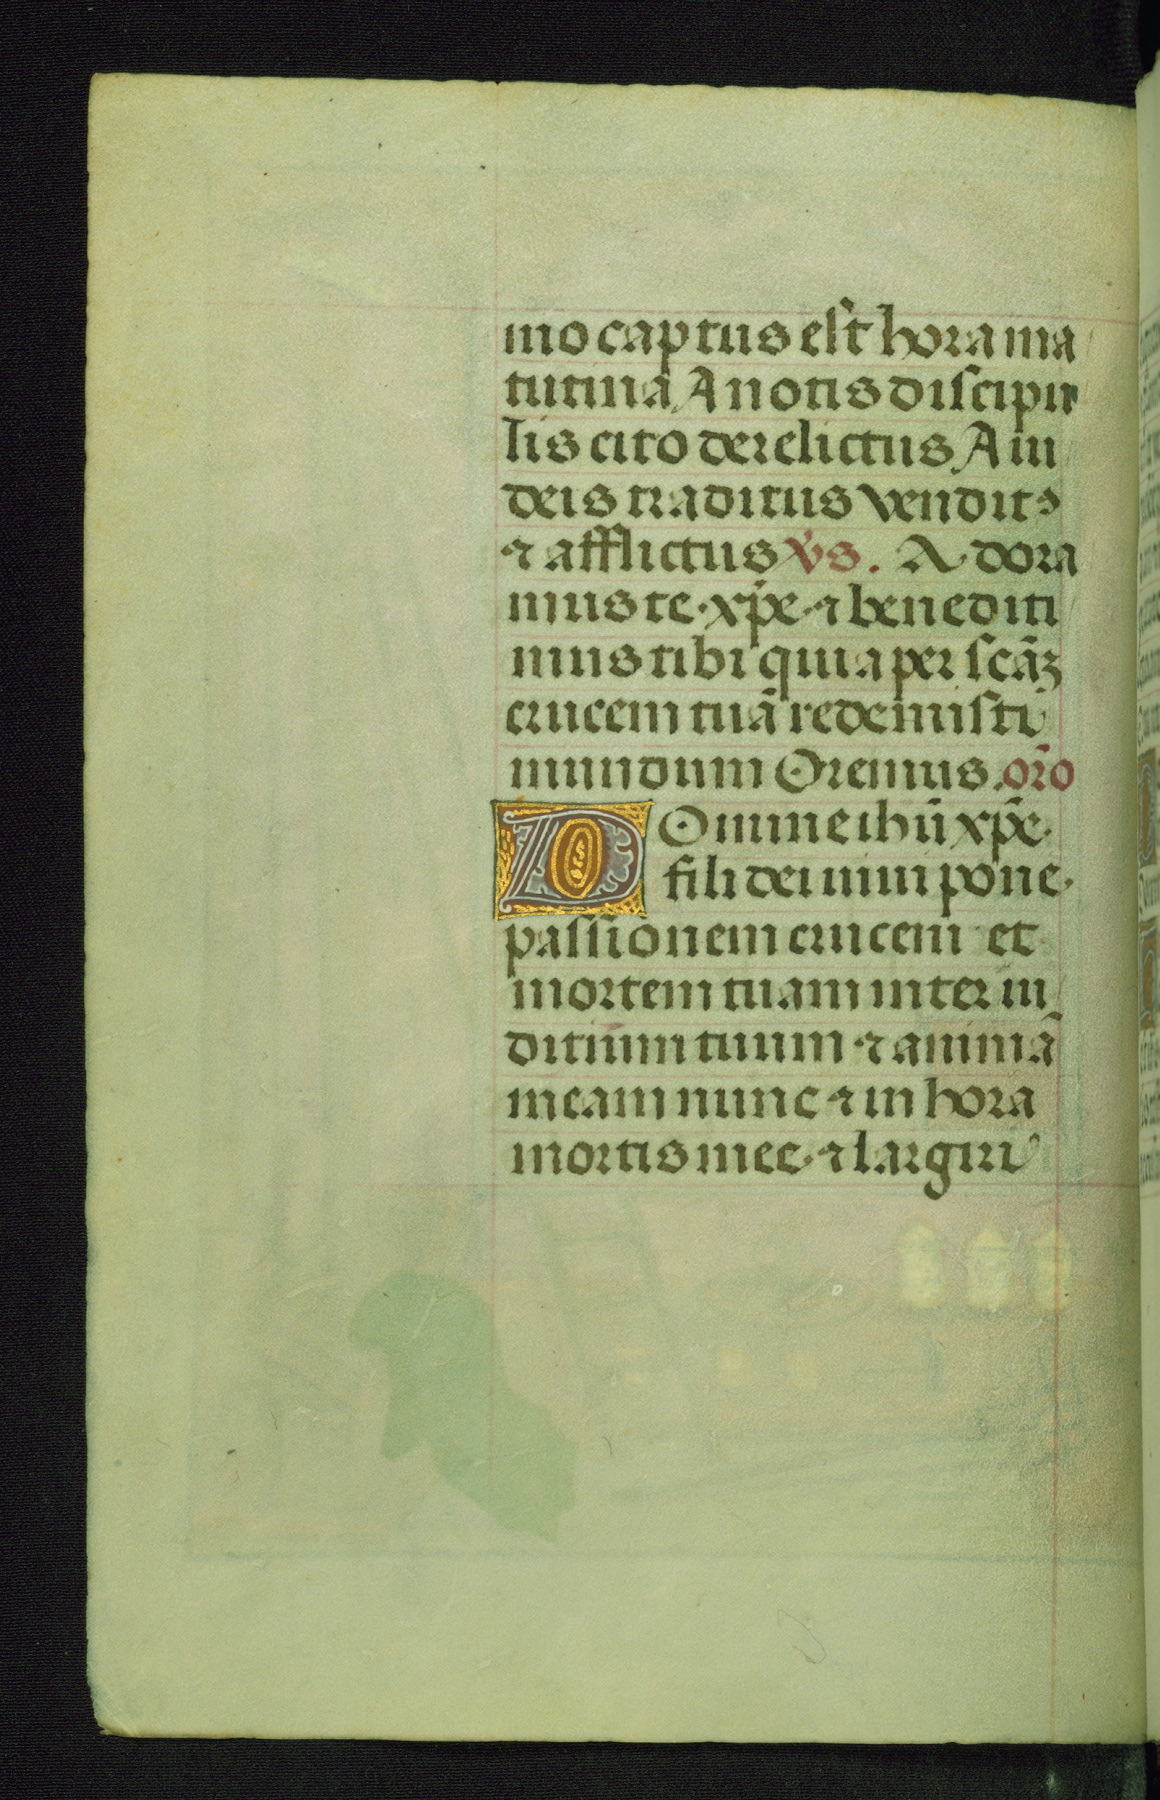 mo captus est hora ma
tutina A notis discipu
lis cito derelictus A iu
deis traditus vendit⁹
⁊ afflictus v̇s. Adora
mus te xp̄e ⁊ benedici
mus tibi quia per scāȝ
crucem tuā redemisti
mundum Oremus. oro̅
DOmine ihū xp̄e
fili dei uiui pone
passionem crucem et
mortem tuam inter iu
ditium tuum ⁊ animā
meam nunc ⁊ in hora
mortis mee ⁊ largiri